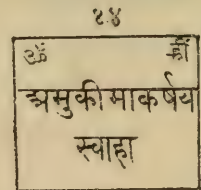 २४
ॐ
अमुकीमाकर्षय
स्वाहा